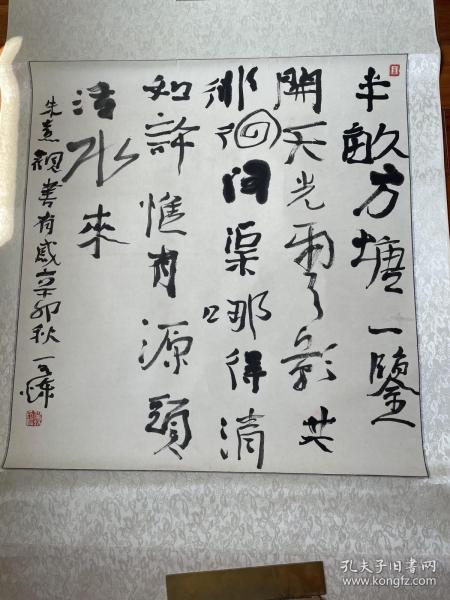 半畝方塘一鑒
開天光雲影共
徘徊問渠哪得清
如許惟有源頭
活水來
朱熹觀書有感辛卯秋
孔夫子旧书网
www.kongfz.com